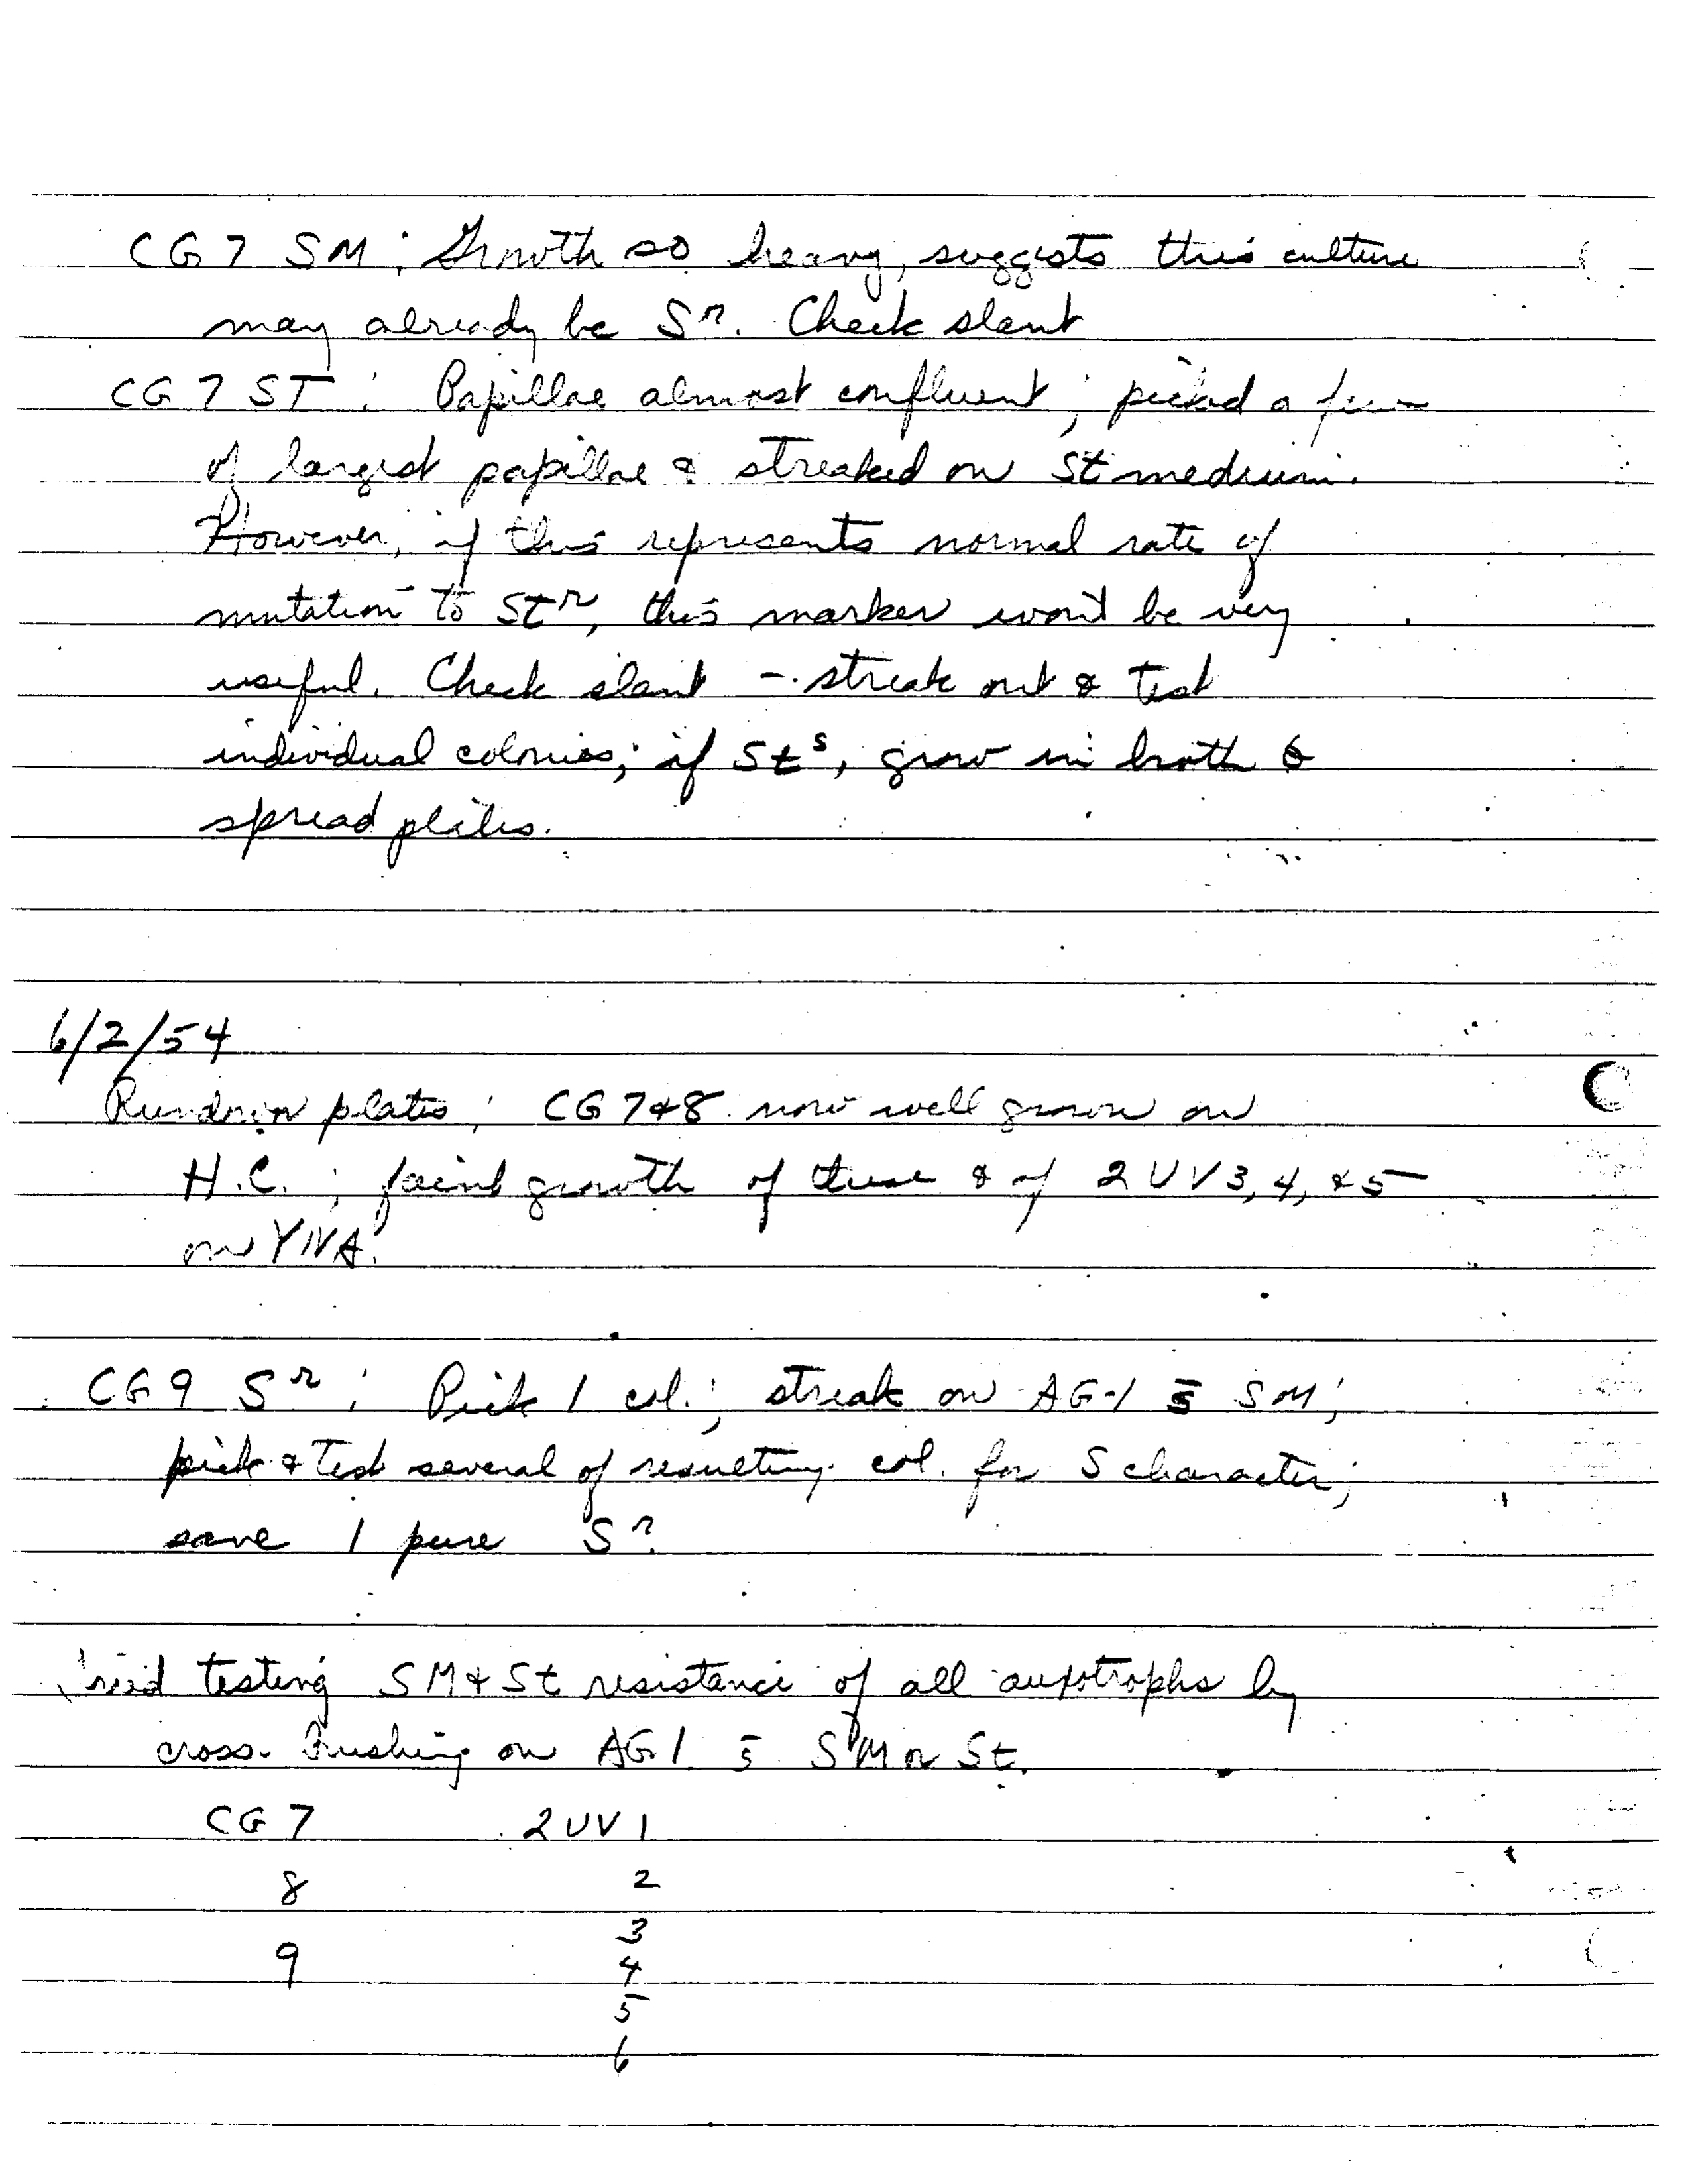 CG7 SM: Growth so heavy, suggests this culture
may already be Sʳ. Check slant
CG7 ST: Papillae almost confluent; picked a few
of largest papillae & streaked on St medium.
However, if this represents normal rate of
mutation to Stʳ, this marker won't be very
useful. Check slant - streak out & test
individual colonies; if Stˢ, grow in broth &
spread plates.
6/2/54
Rundown plates; CG7&8 now well grown on
H.C.; faint growth of these & of 2UV3, 4, & 5
on YNA.
CG9 Sʳ: Pick 1 col.; streak on AG-1 s̄ SM;
pick & test several of resulting col. for S character;
save 1 pure Sʳ.
testing SM & St resistance of all auxotrophs by
cross-brushing on AG1 s̄ SM or St.
CG7 2UV1
8 2
3
9 4
5
6